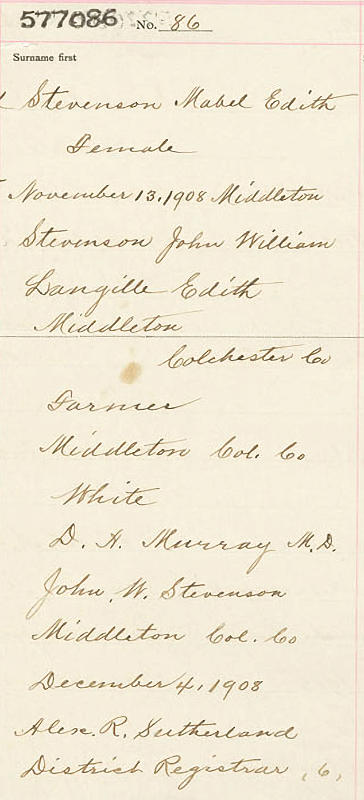 577086 No. 86
Surname first
Stevenson Mabel Edith
Female
November 13, 1908 Middleton
Stevenson John William
Langille Edith
Middleton
Colchester Co
Farmer
Middleton Col. Co
White
D. H. Murray M.D.
John W. Stevenson
Middleton Col. Co
December 4, 1908
Alex. R. Sutherland
District Registrar